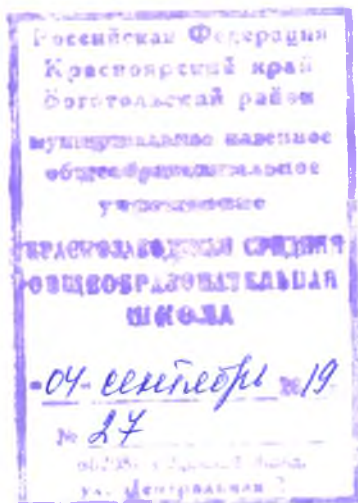 Российская Федерация
Красноярский край
Боготольский район
муниципальное казенное
общеобразовательное
учреждение
КРАСНОЗАВОДСКАЯ СРЕДНЯЯ
ОБЩЕОБРАЗОВАТЕЛЬНАЯ
ШКОЛА
"04" сентября 19
№ 27
ул. Центральная